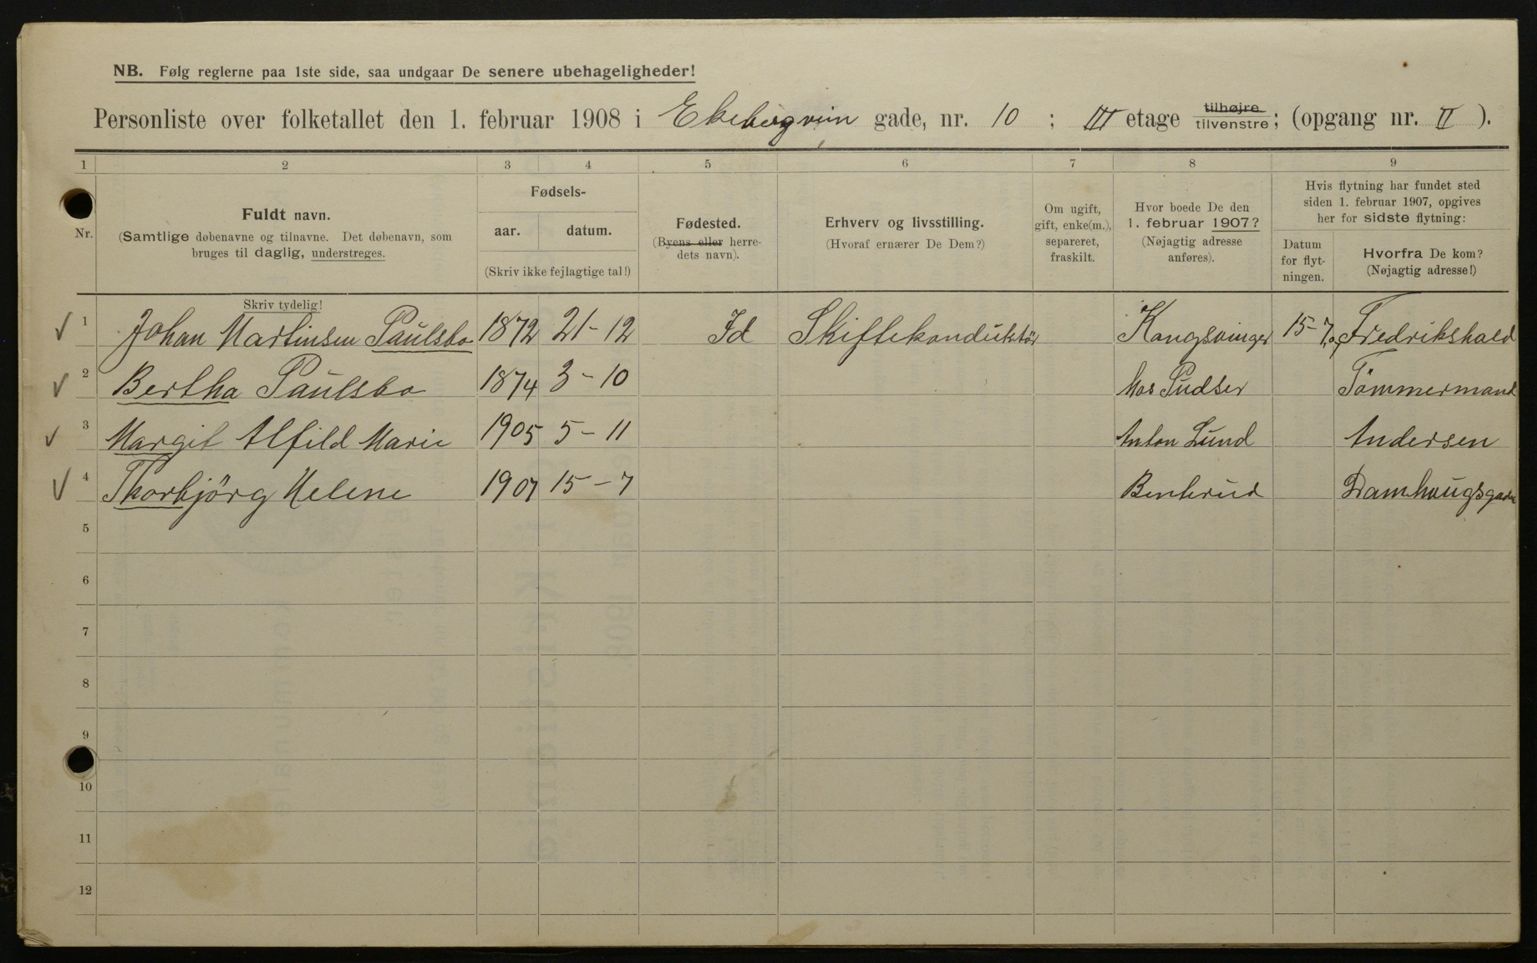 NB. Følg reglerne paa 1ste side, saa undgaar De senere ubehageligheder!
Personliste over folketallet den 1. februar 1908 i Ekebergveien gade, nr. 10 ; III etage tilhøjre tilvenstre; (opgang nr. II ).
1 2 3 4 5 6 7 8 9
Nr.
Fuldt navn.
(Samtlige døbenavne og tilnavne. Det døbenavn, som
bruges til daglig, understreges.
Skriv tydelig!
Fødsels-
aar. datum.
(Skriv ikke fejlagtige tal!)
Fødested.
(Byens eller herre-
dets navn).
Erhverv og livsstilling.
(Hvoraf ernærer De Dem?)
Om ugift,
gift, enke(m.),
separeret,
fraskilt.
Hvor boede De den
1. februar 1907?
(Nøjagtig adresse
anføres).
Hvis flytning har fundet sted
siden 1. februar 1907, opgives
her for sidste flytning:
Datum
for flyt-
ningen.
Hvorfra De kom?
(Nøjagtig adresse!)
1 Johan Martinsen Paulsbo 1872 21-12 Id Skiftekonduktør Kongsvinger 15-7 Fredrikshald
2 Bertha Paulsbo 1874 3-10 hos Pudser Tømmermand
3 Margit Alfild Marie 1905 5-11 Anton Lund Andersen
4 Thorbjörg Helene 1907 15-7 Damhaugsgade
5
6
7
8
9
10
11
12